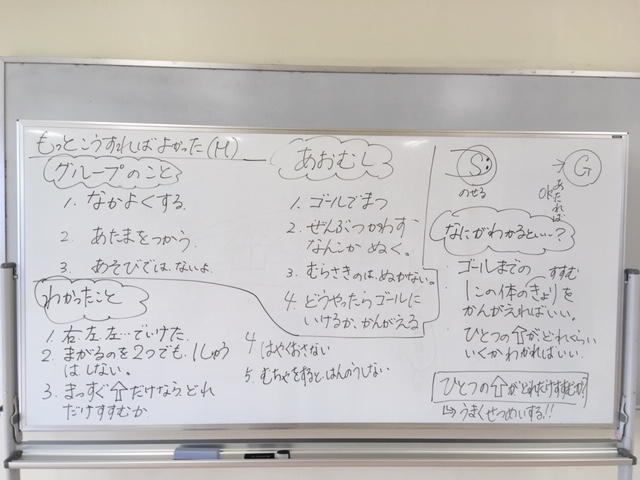 もっとこうすればよかった(M)
グループのこと
1. なかよくする
2. あたまをつかう
3. あそびでは、ないよ
あおむし
1. ゴールでまつ
2. ぜんぶつかわず
なんこか ぬく。
3. むらさきのは、ぬかせない。
4. どうやったらゴールに
いけるか、かんがえる
わかったこと
1. 右、左、左…でいけた。
2. まがるのを2つでも、1しゅう
はしない。
3. まっすぐ⇧だけなら、どれ
だけすすむか
4. はやくおさない
5. むちゃをすると、はんのうしない
S
のせる
→G
あたれば
OK
なにがわかるといい…?
ゴールまでの
1この体のきょりを
すすむ
かんがえればいい。
ひとつの⇧がどれぐらい
いくかわかればいい。
ひとつの⇧がどれだけすすむか?
↳うまくせつめいする!!